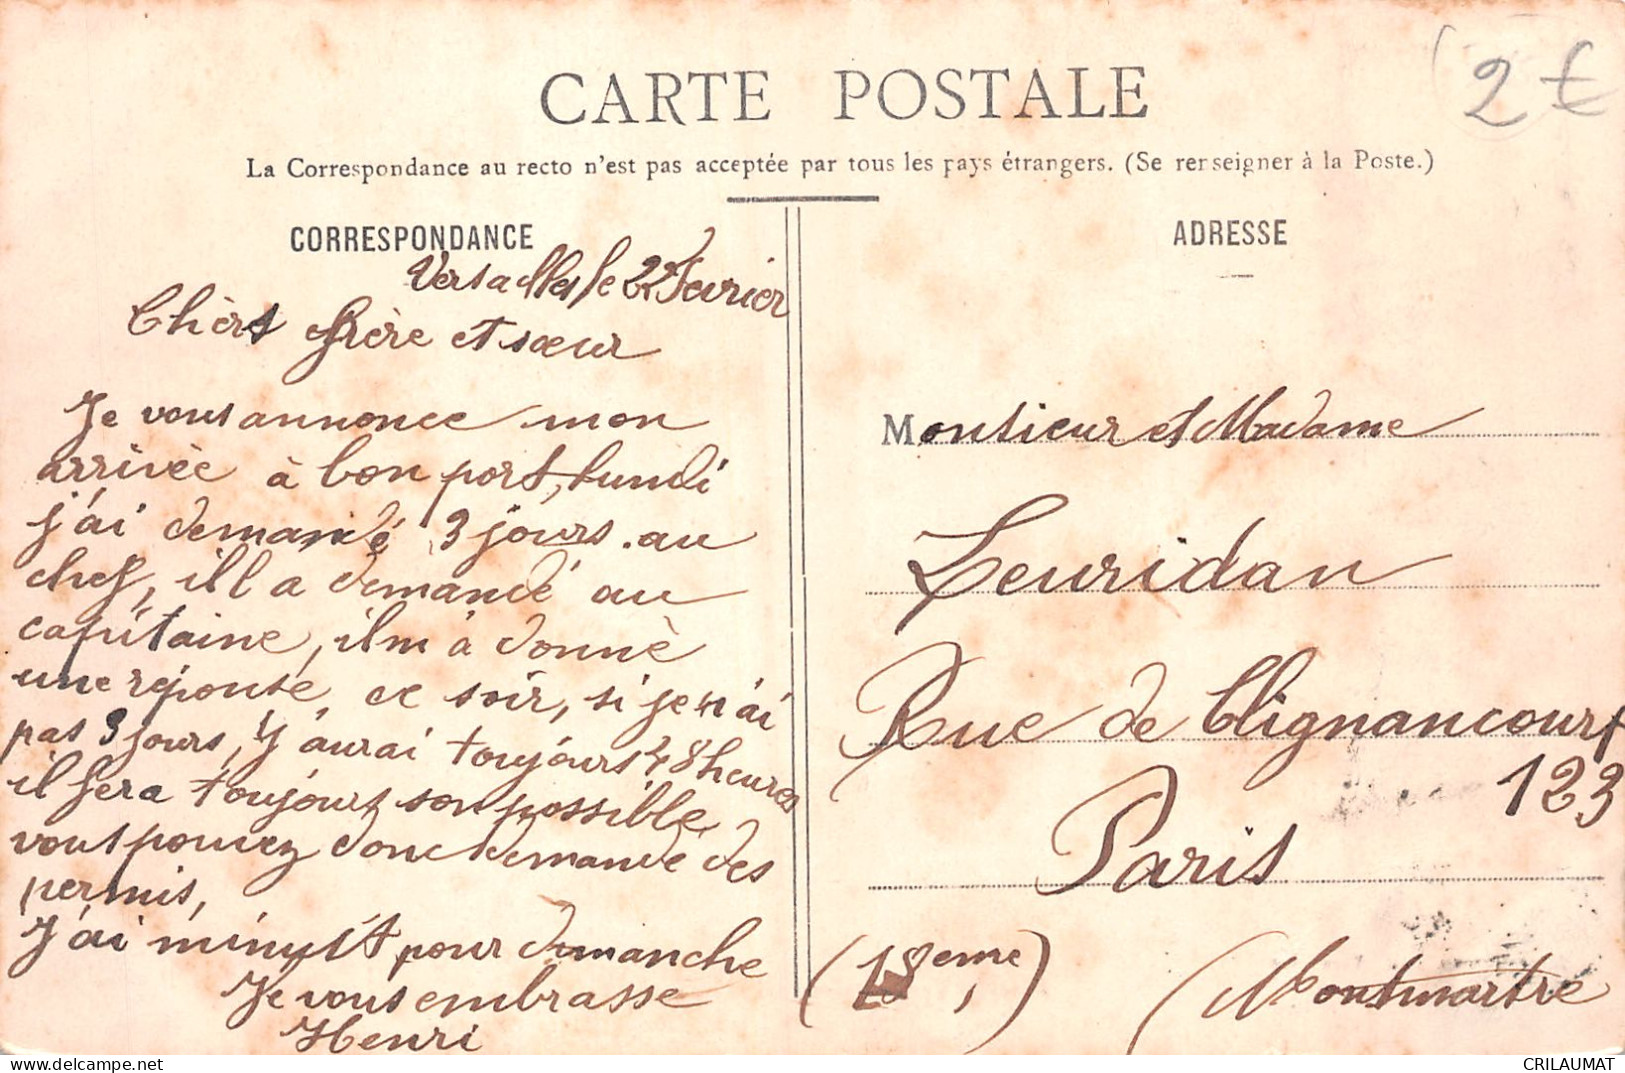 CARTE POSTALE
2 €
La Correspondance au recto n'est pas acceptée par tous les pays étrangers. (Se renseigner à la Poste.)
CORRESPONDANCE
Versailles le 22 Fevrier
Chèrs frère et sœur
Je vous annonce mon
arrivée à bon port, lundi
j'ai demandé 3 jours au
chef, ill a demandé au
capitaine, il m'à donnè
une réponse ce soir, si je n'ai
pas 3 jours, j'aurai toujours 48 heures
il fera toujours son possible
vous pouvez donc demandé des
permis,
J'ai minuit pour dimanche
Je vous embrasse
Henri
ADRESSE
Monsieur et Madame
Leuridan
Rue de Clignancourt
123
Paris
(18eme)
(Montmartre
CRILAUMAT